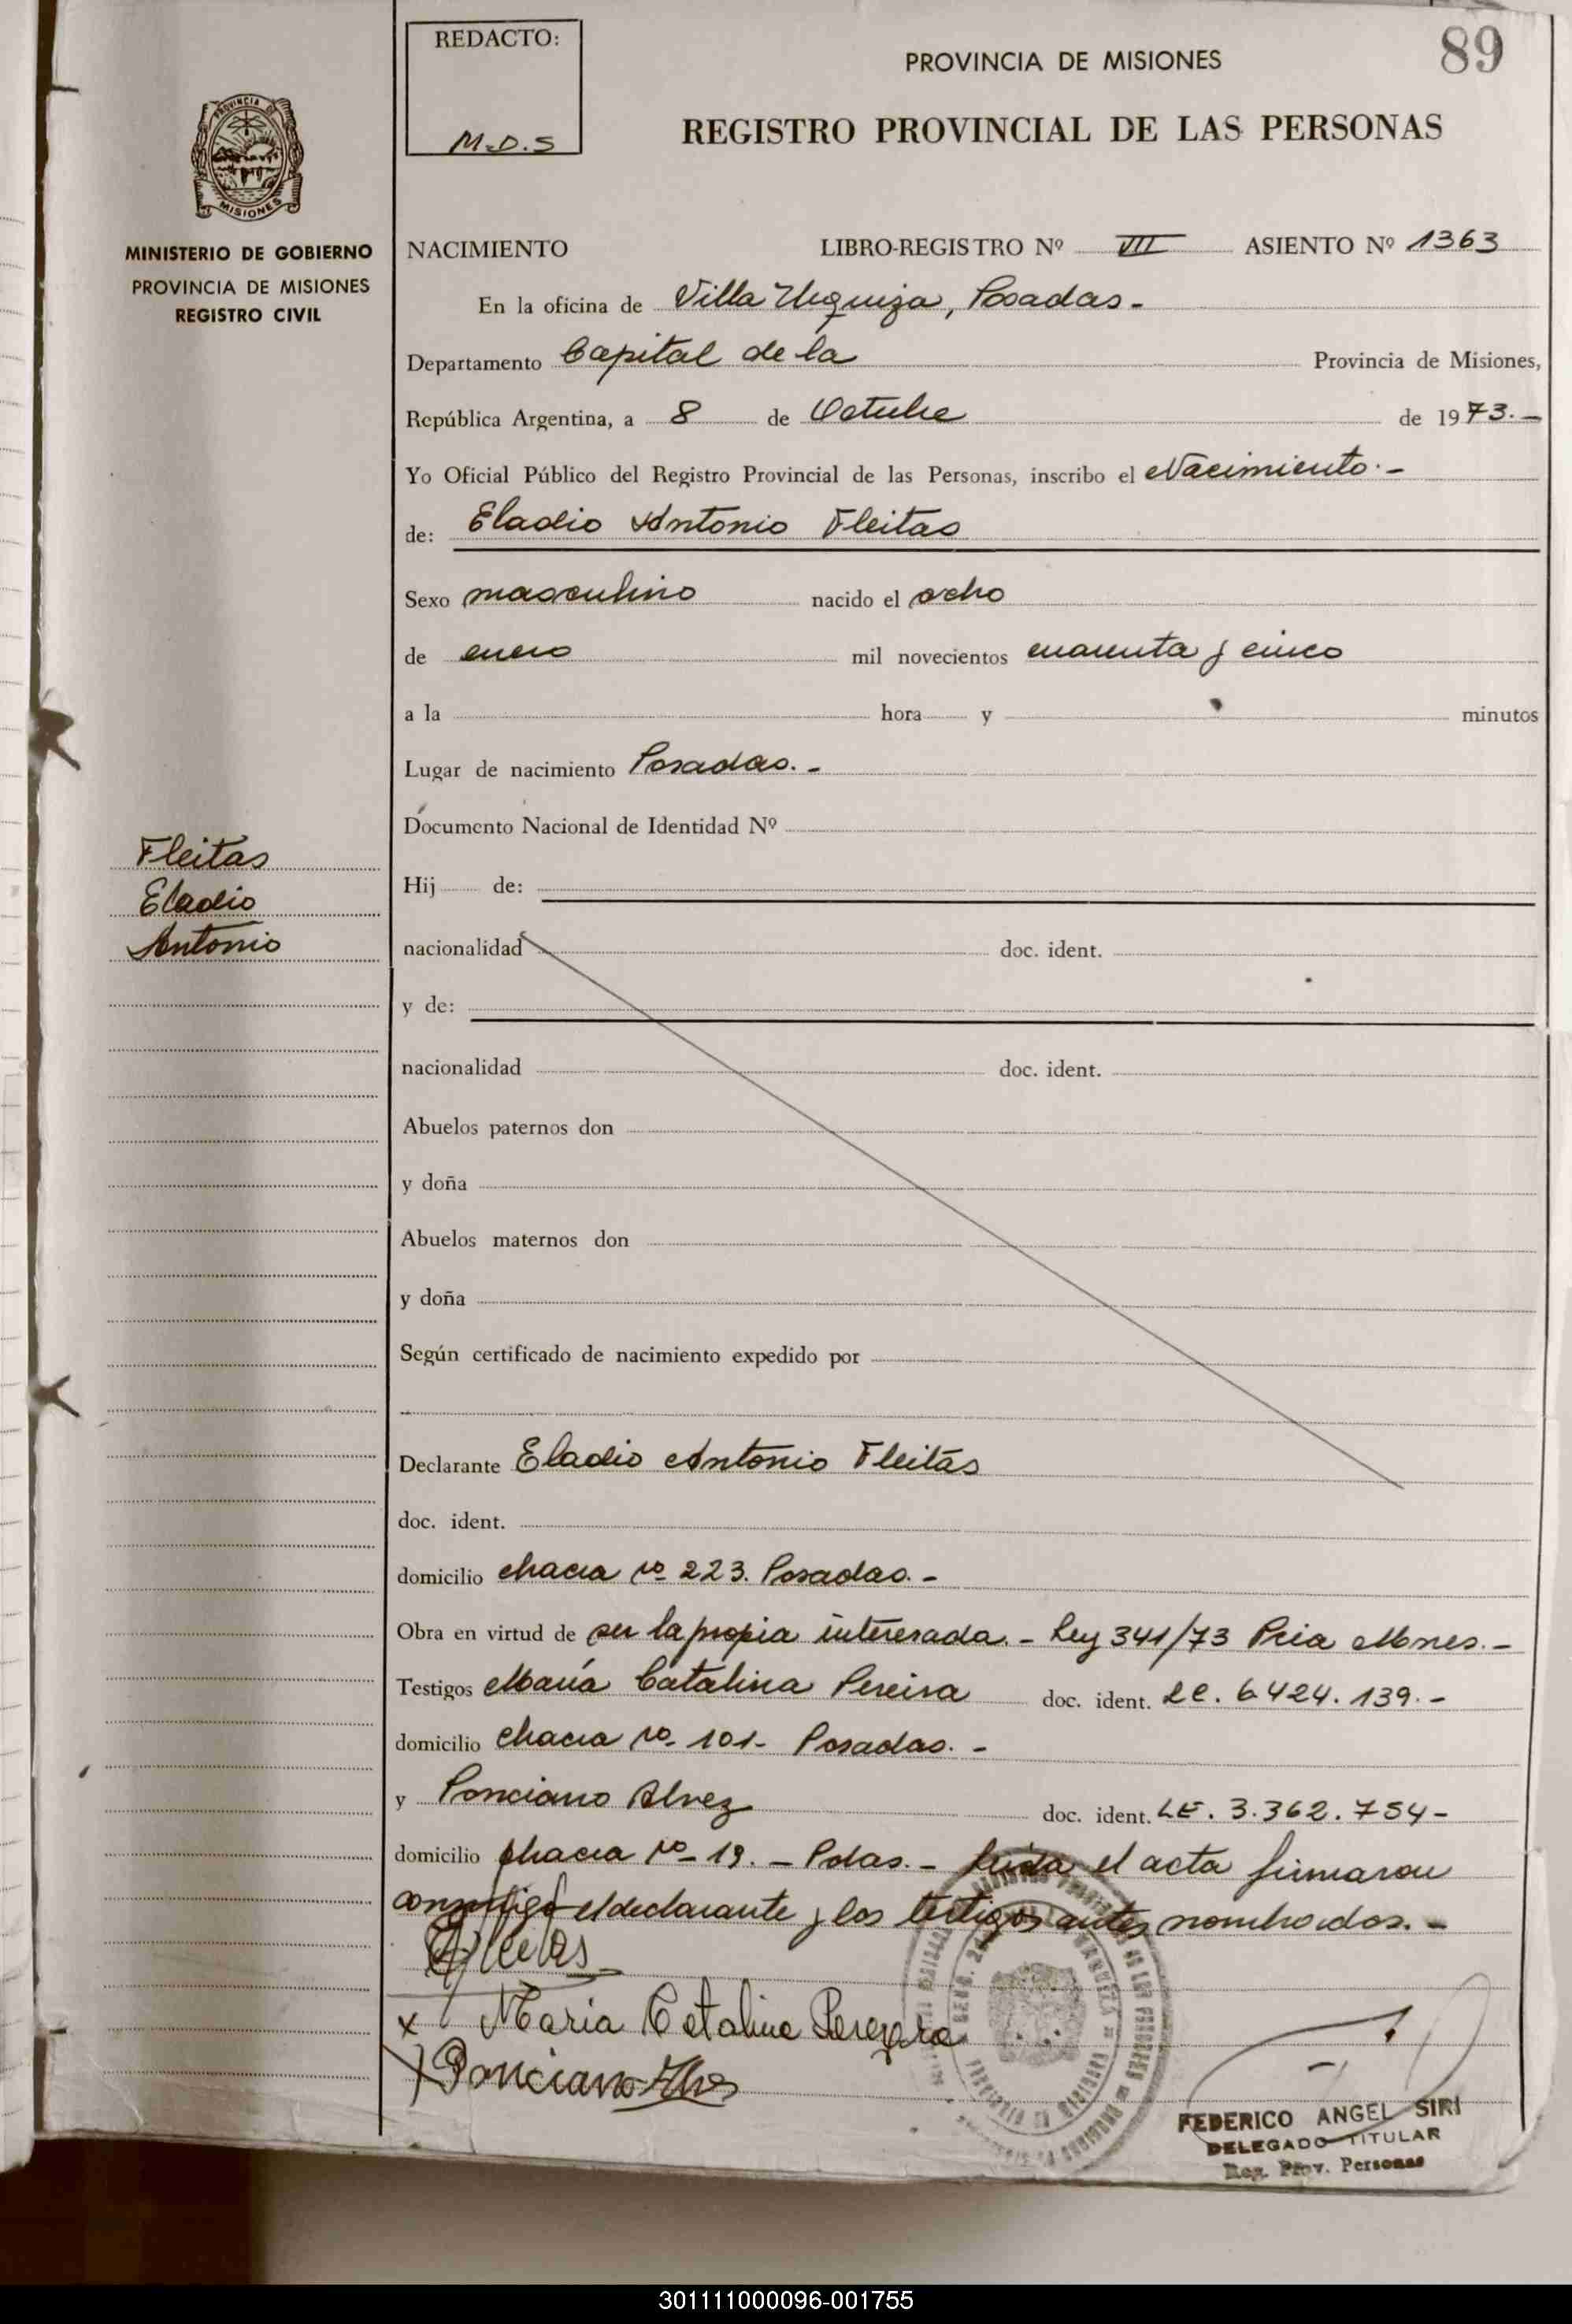 REDACTO:
M.D.S
PROVINCIA DE MISIONES
89
REGISTRO PROVINCIAL DE LAS PERSONAS
PROVINCIA DE
MISIONES
MINISTERIO DE GOBIERNO
PROVINCIA DE MISIONES
REGISTRO CIVIL
NACIMIENTO LIBRO-REGISTRO Nº VII ASIENTO Nº 1363
En la oficina de Villa Urquiza, Posadas.-
Departamento Capital de la Provincia de Misiones,
República Argentina, a 8 de Octubre de 1973.-
Yo Oficial Público del Registro Provincial de las Personas, inscribo el Nacimiento.-
de: Eladio Antonio Fleitas
Sexo masculino nacido el ocho
de enero mil novecientos cuarenta y cinco
a la hora y minutos
Lugar de nacimiento Posadas.-
Documento Nacional de Identidad Nº
Fleitas
Eladio
Antonio
Hij de:
nacionalidad doc. ident.
y de:
nacionalidad doc. ident.
Abuelos paternos don
y doña
Abuelos maternos don
y doña
Según certificado de nacimiento expedido por
Declarante Eladio Antonio Fleitas
doc. ident.
domicilio chacra nº 223. Posadas.-
Obra en virtud de ser la propia interesada.- Ley 341/73 Pcia Mnes.-
Testigos María Catalina Pereira doc. ident. LC. 6424.139.-
domicilio chacra nº 101- Posadas.-
y Ponciano Alvez doc. ident. LE. 3.362.754-
domicilio chacra nº 19.- Pdas.- Leída el acta firmaron
conmigo el declarante y los testigos antes nombrados.-
x Maria Catalina Pereyra
Ponciano Alves
FEDERICO ANGEL SIRI
DELEGADO TITULAR
Reg. Prov. Personas
301111000096-001755